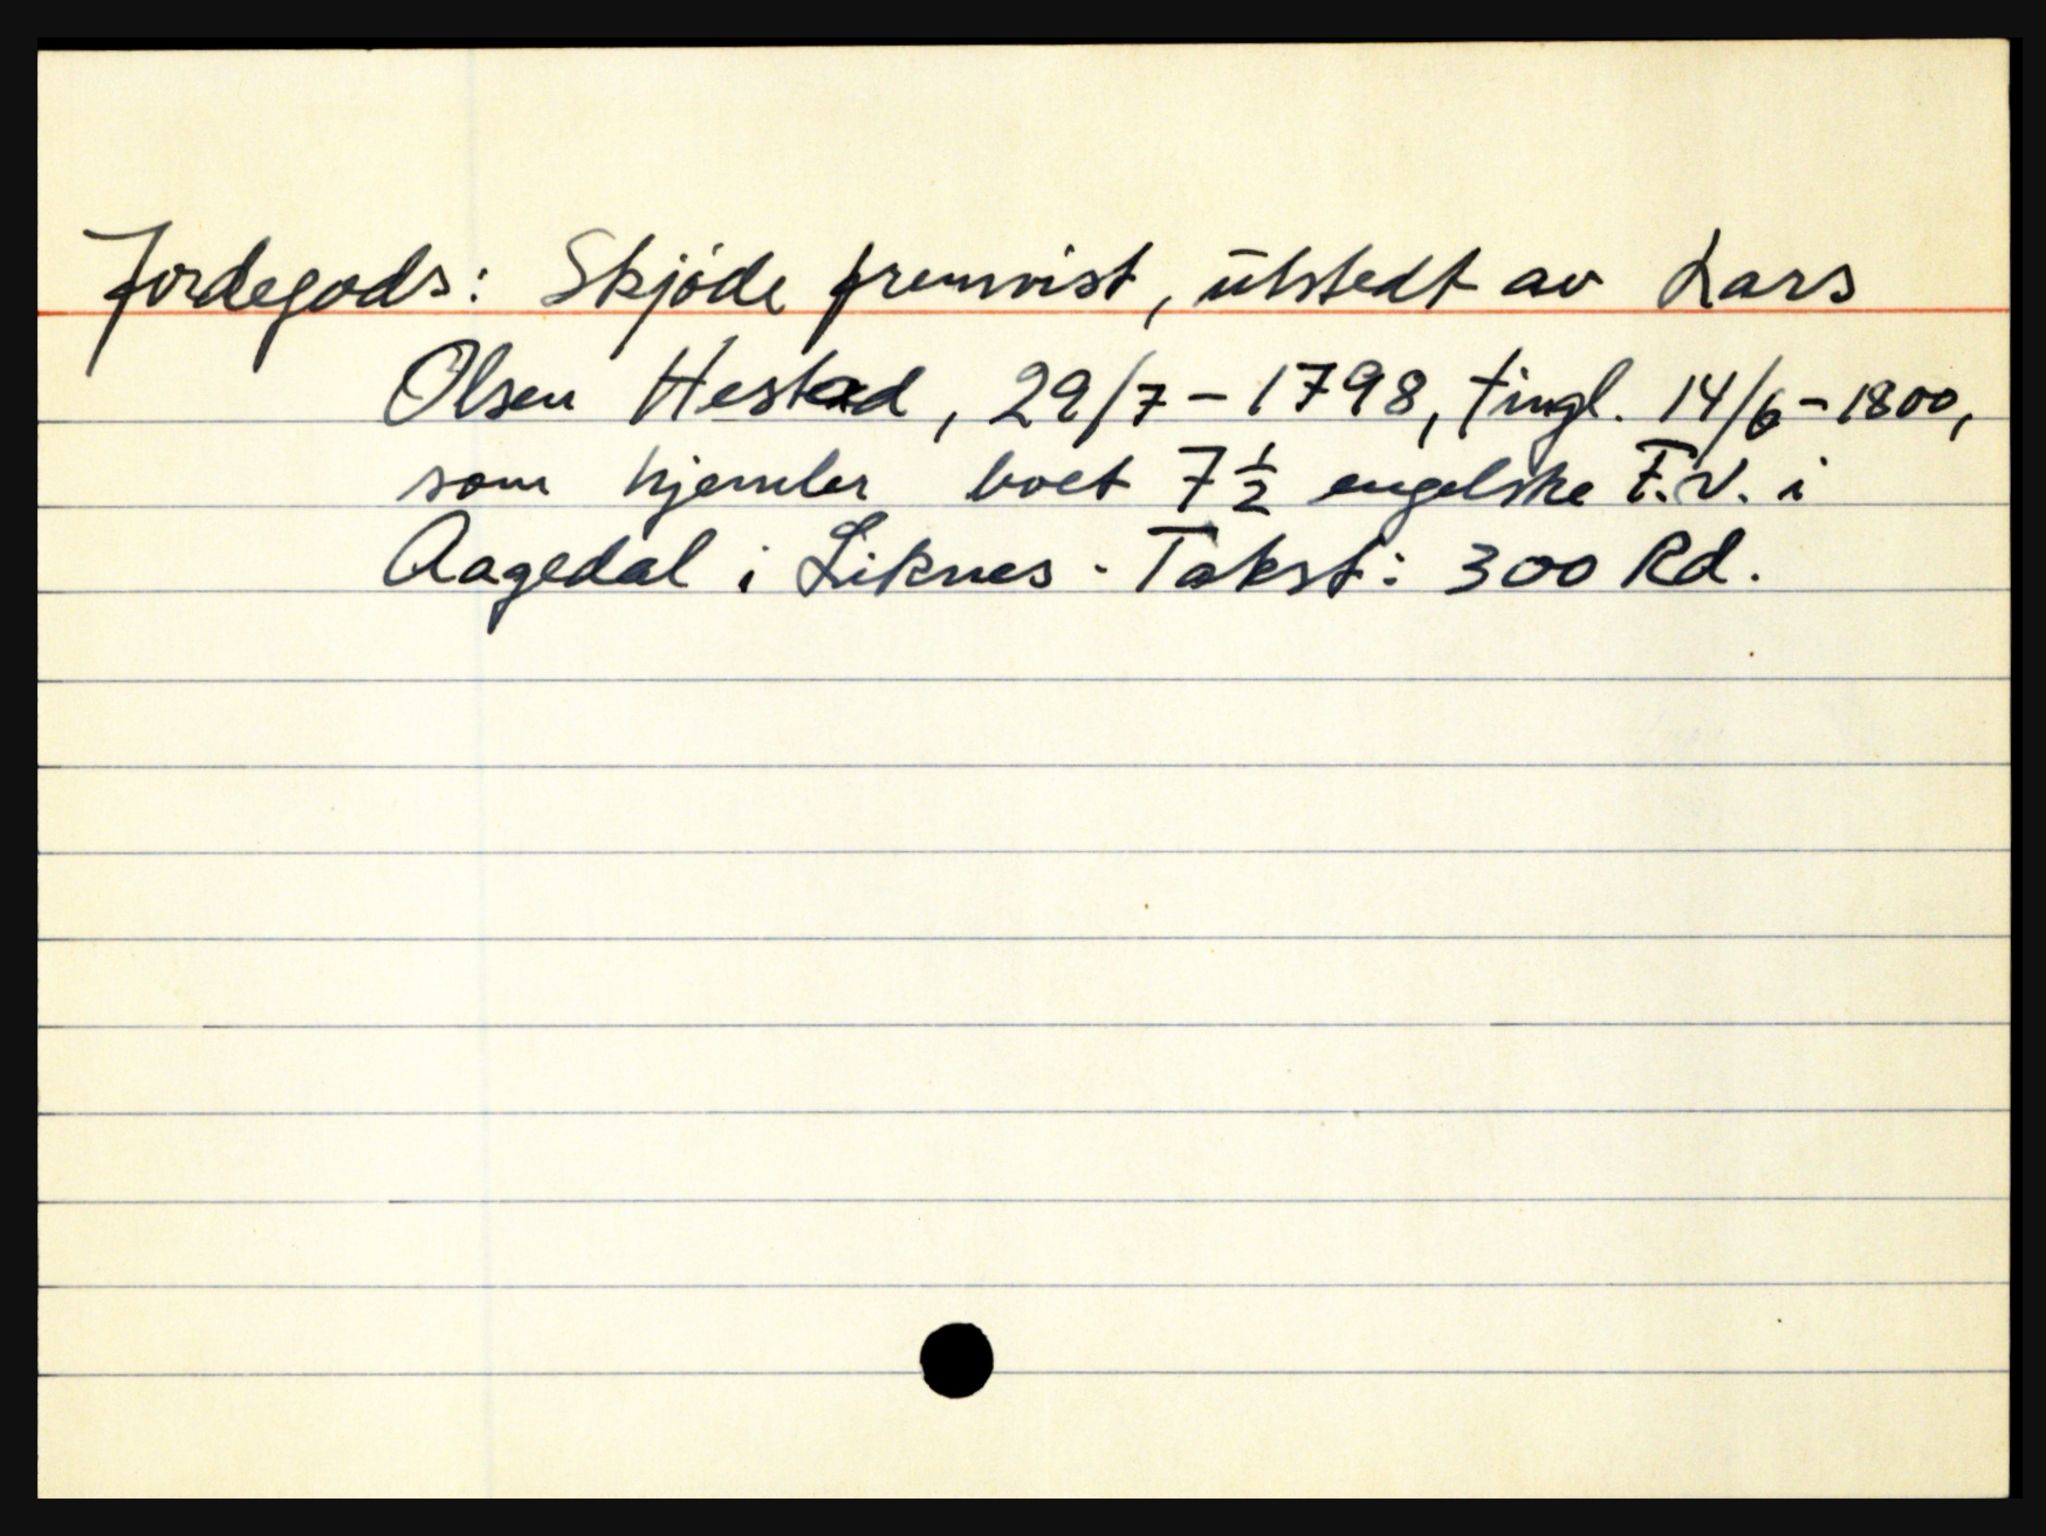 Jordegods: Skjøde fremvist, utstedt av Lars
Olsen Hestad, 29/7 - 1798, tingl. 14/6 - 1800,
som hjemler boet 7 1/2 engelske F.V. i
Aagedal i Liknes. Takst: 300 Rd.